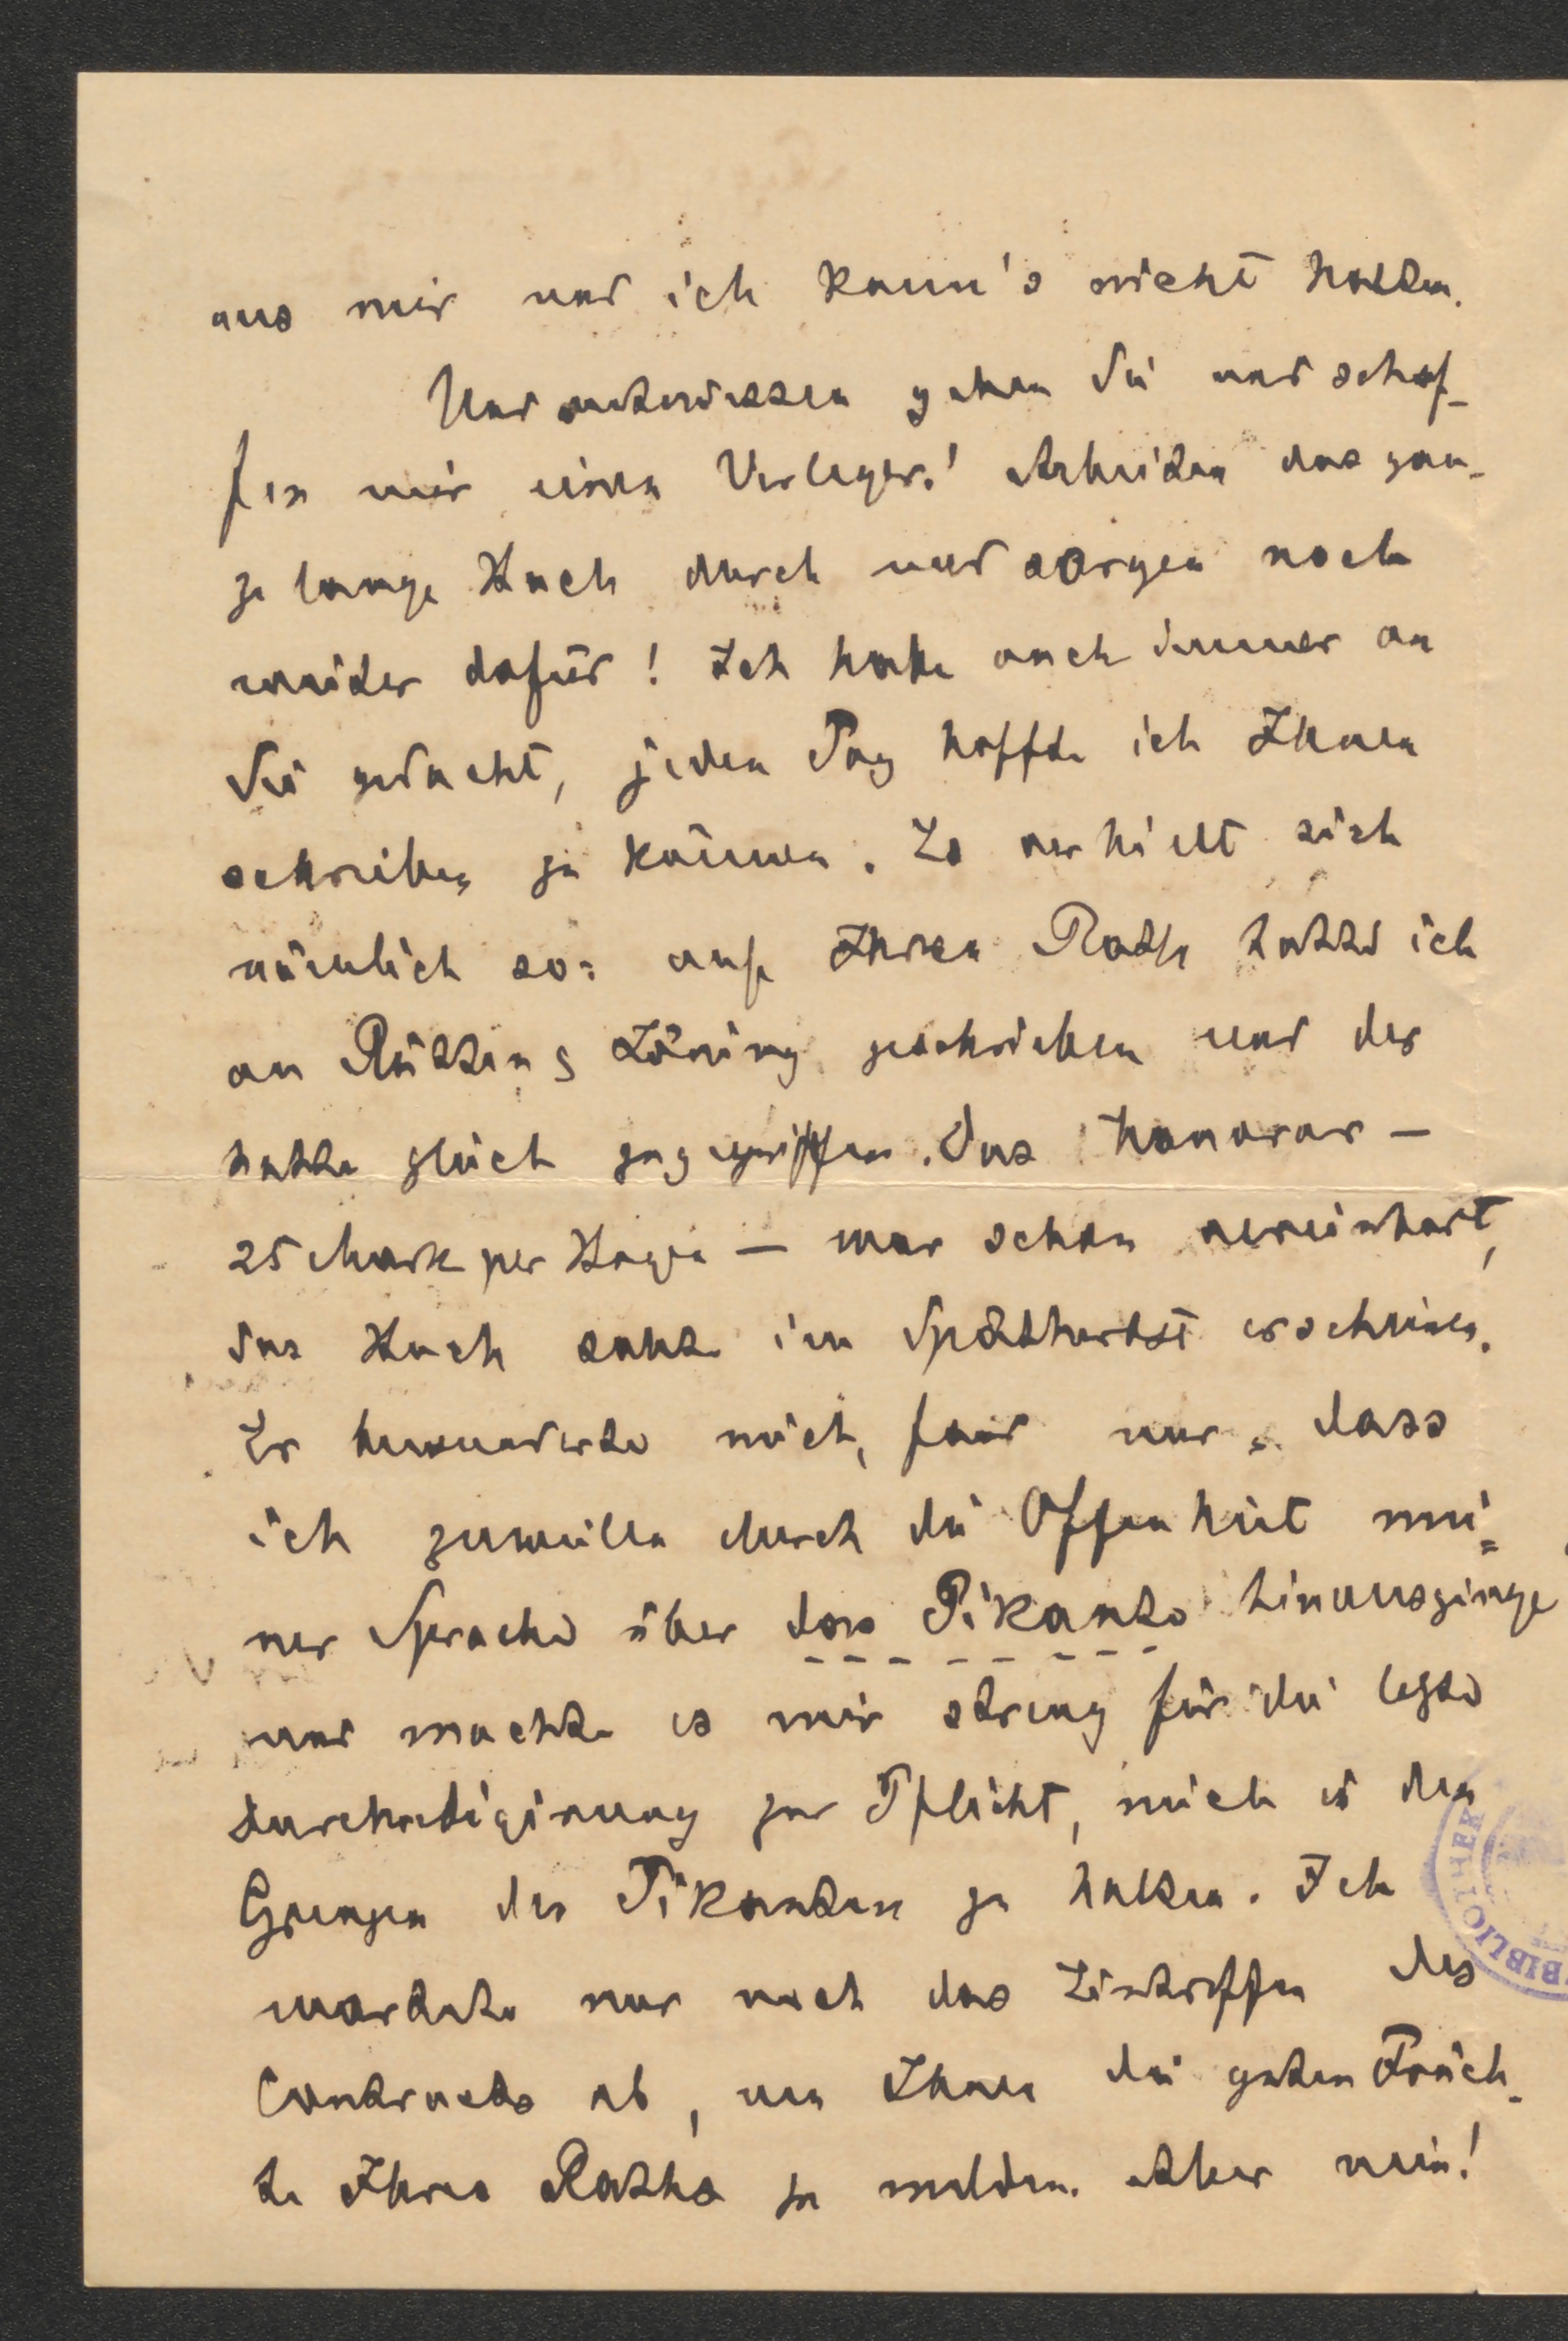 aus mir und ich kann's nicht halten.
Und unterdessen gehen Sie und schaf-
fen mir einen Verleger! Arbeiten das gan-
ze lange Buch durch und sorgen noch
weiter dafür! Ich habe auch immer an
Sie gedacht, jeden Tag hoffte ich Ihnen
schreiben zu können. Es verhielt sich
nämlich so: auf Ihren Rath hatte ich
an Rütten & Löning geschrieben und der
hatte gleich zugegriffen. Das Honorar —
25 Mark per Bogen — war schon vereinbart,
das Buch sollte im Spätherbst erscheinen.
Er bewunderte mich, fand nur, dass
ich zuweilen durch die Offenheit mei=
ner Sprache über das Pikante hinausginge
und machte es mir streng für die letzte
Durchredigirung zur Pflicht, mich in den
Grenzen des Pikanten zu halten. Ich
wartete nur noch das Eintreffen des
Contracts ab, um Ihnen die guten Früch-
te Ihres Rathes zu melden. Aber nein!
BIBLIOTHEK